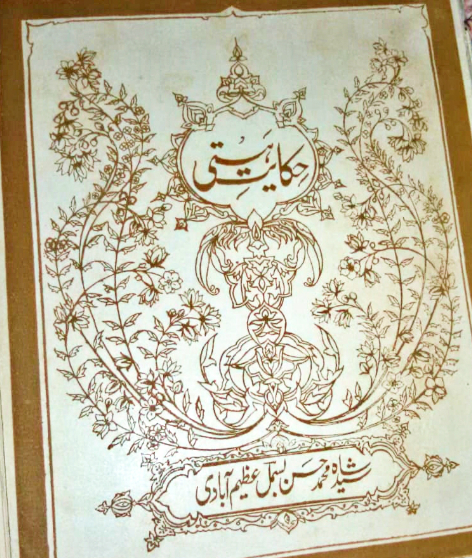 حکایتِ ہستی
سید شاہ محمد حسن بسمل عظیم آبادی